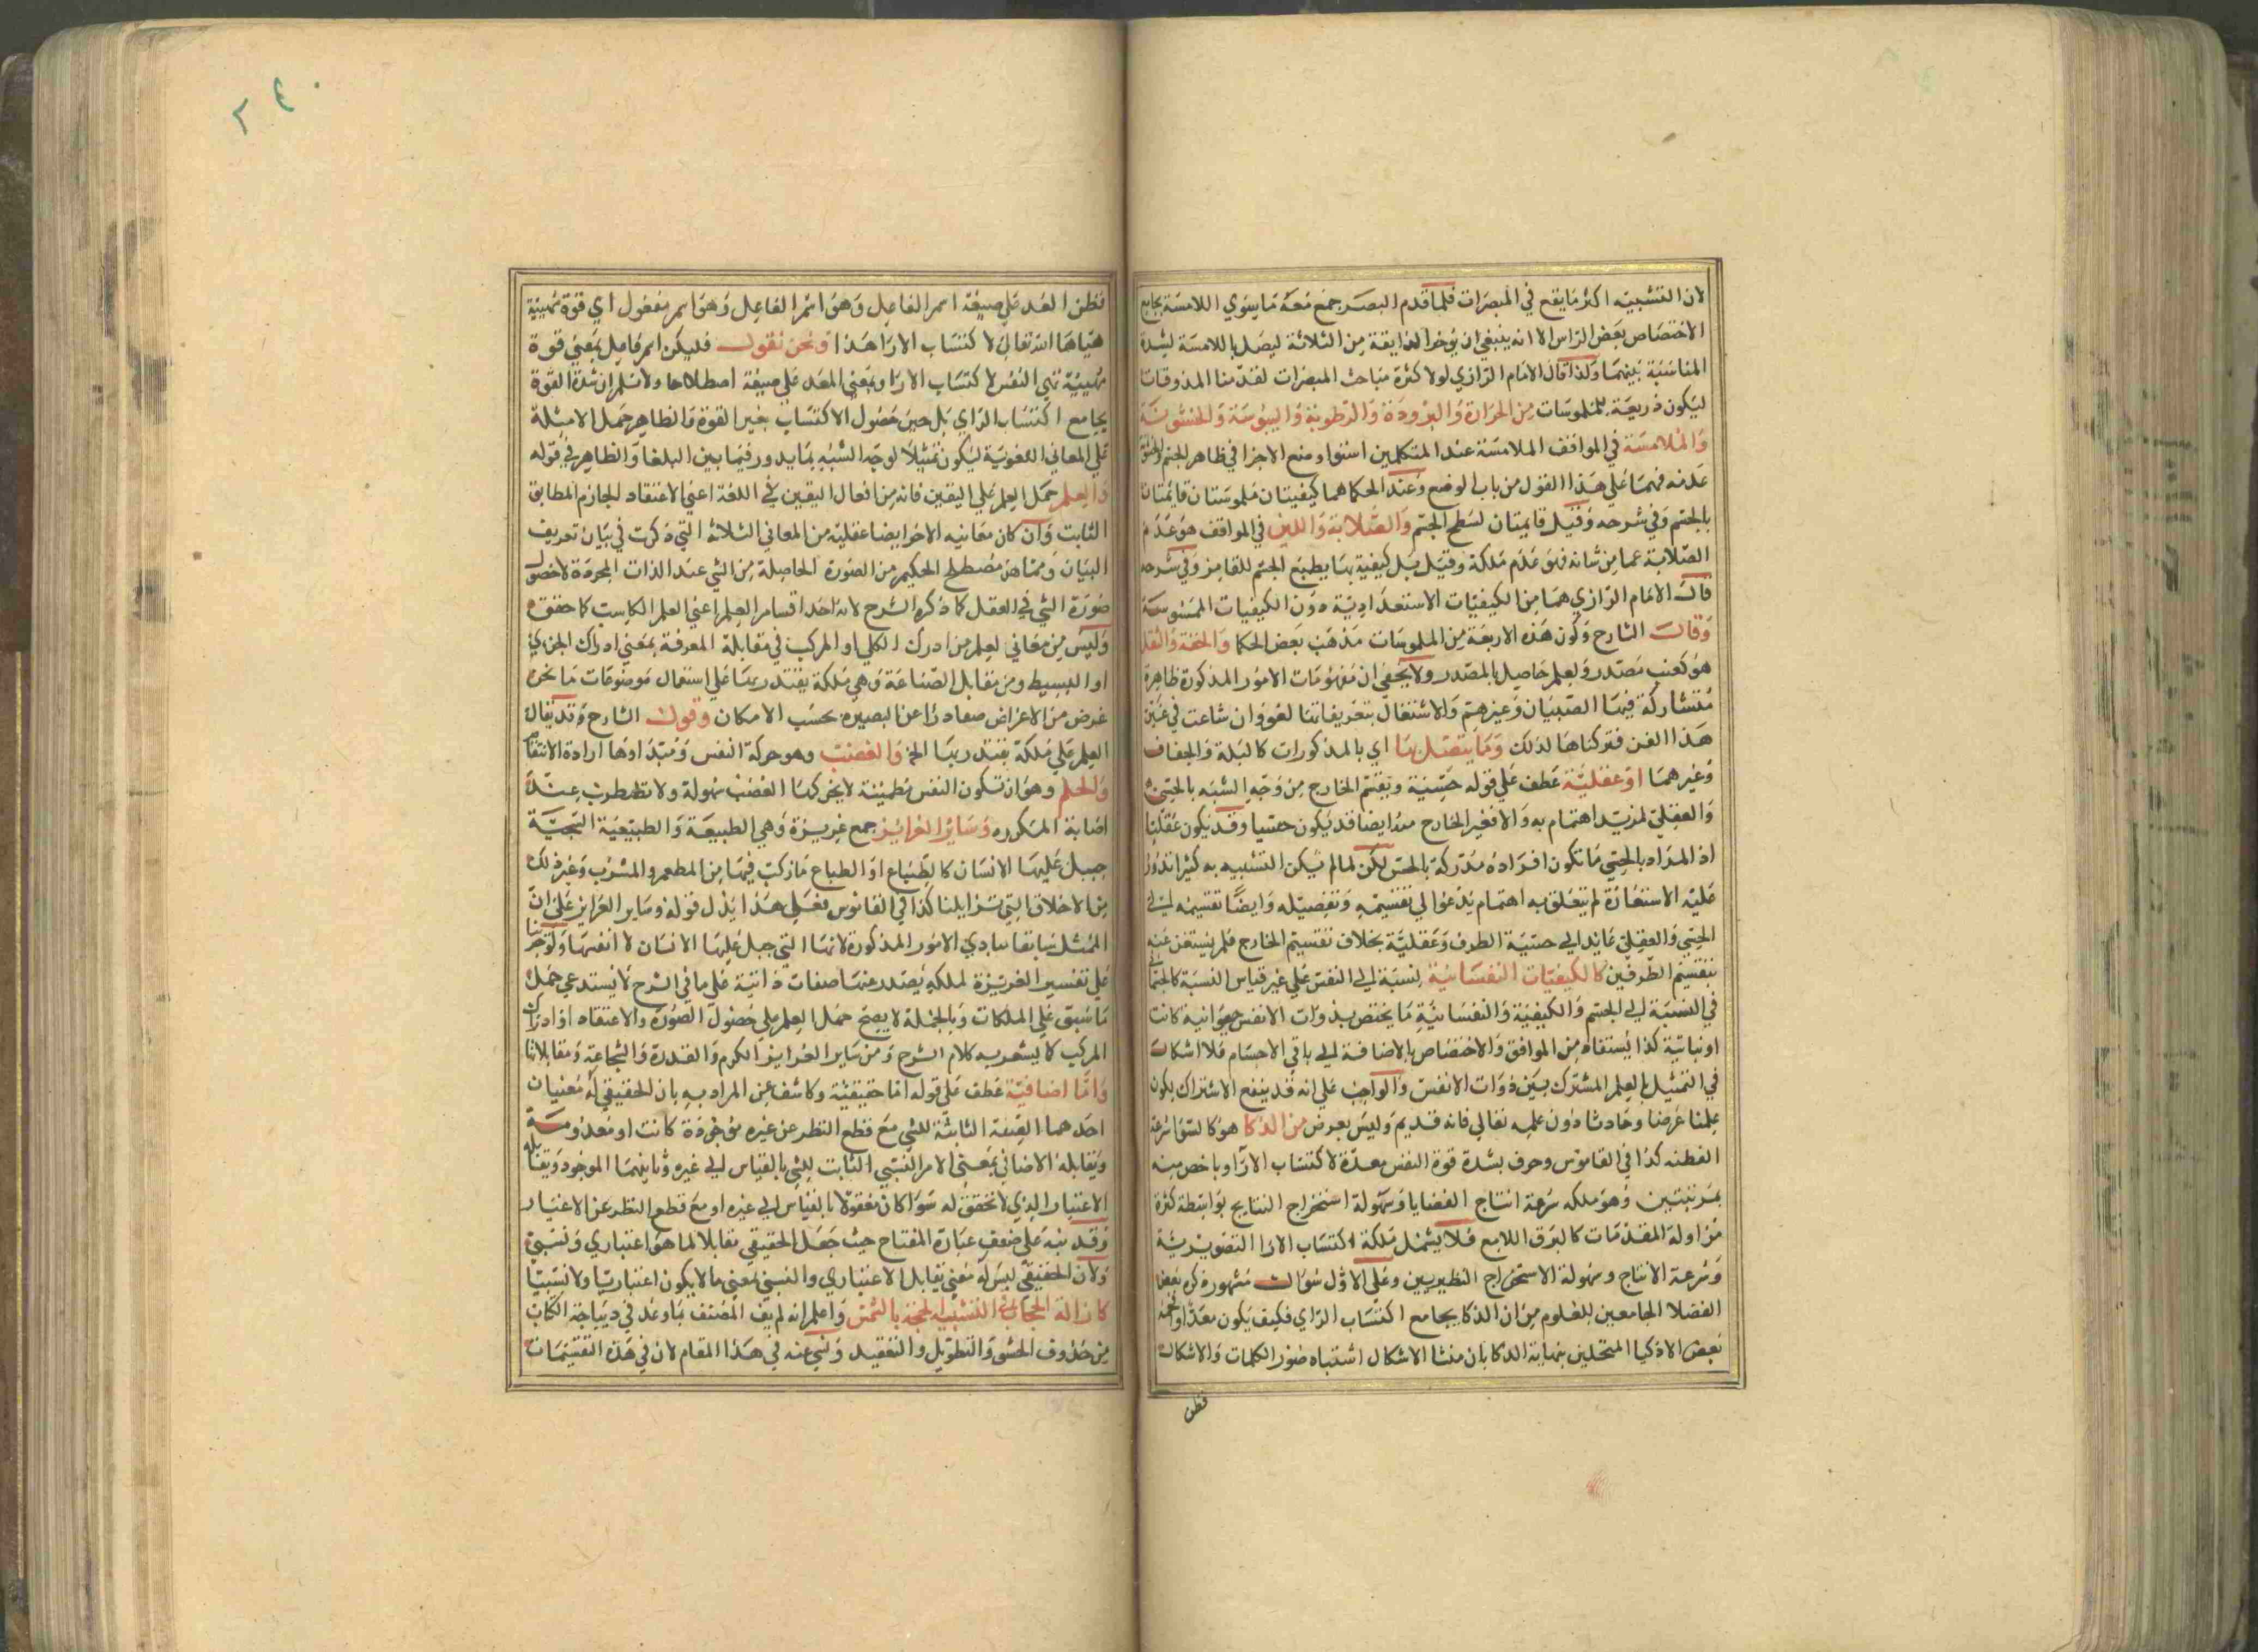 لان التشبيه اكثر ما يقع في المبصرات فلما قدم البصر جمع معه ما يسوي اللامسة بجامع
الاختصاص ببعض الراس الا انه ينبغي ان يؤخر الذايقة من الثلاثة ليصل باللامسة لشدة
المناسبة بينهما ولذا قال الامام الرازي لولا كثرة مباحث المبصرات لقدمنا المذوقات
ليكون ذريعة للملموسات من الحرارة والبرودة والرطوبة واليبوسة والخشونة
والملامسة في المواقف الملامسة عند المتكلمين استوا وضع الاجزا في ظاهر الجسم والخشونة
عدمه فهما علي هذا القول من باب الوضع وعند الحكما هما كيفيتان ملموستان قايمتان
بالجسم وفي شرحه وقيل قايمتان لسطح الجسم والصلابة واللين في المواقف هو عدم
الصلابة عما من شانه فهو عدم ملكة وقيل بل كيفية بها يطبع الجسم للغامز وفي شرحه
قال الامام الرازي هما من الكيفيات الاستعدادية دون الكيفيات المحسوسة
وقال الشارح وكون هذه الاربعة من الملموسات مذهب بعض الحكما والخفة والثقل
هو كعنب مصدر وكعلم حاصل بالمصدر ولا يخفي ان مفهومات الامور المذكورة ظاهرة
متشاركة فيها الصبيان وغيرهم والاشتغال بتعريفاتها لغو وان شاعت في غير
هذا الفن فتركناها لذلك وما يتصل بها اي بالمذكورات كالبلة والجفاف
وغيرهما او عقلية عطف علي قوله حسية وبقسم الخارج من وجه الشبه بالحسي
والعقلي لمزيد اهتمام به والا فغير الخارج منه ايضا قد يكون حسيا وقد يكون عقليا
اذ المراد بالحسي ما تكون افراده مدركة بالحس لكن لما لم يكن التشبيه به كثيرا تدور
عليه الاستعارة لم يتعلق به اهتمام يدعوا الي تقسيمه وتفصيله وايضا تقسيمه الي
الحسي والعقلي عايد الي حسية الطرف وعقلية بخلاف تقسيم الخارج فلم يستغن عنه
بتقسيم الطرفين كالكيفيات النفسانية نسبة الي النفس علي غير قياس النسبة كالجسماني
في النسبة الي الجسم والكيفية والنفسانية ما يختص بذوات الانفس حيوانية كانت
او نباتية كذا يستفاد من المواقف والاختصاص بالاضافة الي باقي الاجسام فلا اشكال
في التمثيل بالعلم المشترك بين ذوات الانفس والواجب علي انه قد يدفع الاشتراك بكون
علمنا عرضا وحادثا دون علمه تعالي فانه قديم وليس بعرض من الذكا هو كالتوا سرعة
الفطنه كذا في القاموس وعرف بشدة قوة النفس معدة لاكتساب الارآ وباخص منه
بمرتبتين وهو ملكه سرعة انتاج القضايا وسهولة استخراج النتايج بواسطة كثرة
مزاولة المقدمات كالبرق اللامع فلا يشمل ملكة اكتساب الارا التصويرية
وسرعة الانتاج وسهولة الاستخراج النظريين وعلي الاول سؤال مشهور ذكره بعض
الفضلا الجامعين للعلوم من ان الذكا يجامع اكتساب الراي فكيف يكون معدا
بعض الاذكيا المتحلين بنهاية الذكا بان منشا الاشكال اشتباه صور الكلمات والاشكال
فظن
٢٤٠
فظن المعد علي صيغة اسم الفاعل وهو اسم الفاعل وهو اسم مفعول اي قوة مهيئة
هياها الله تعالي لاكتساب الارا هذا ونحن نقول فليكن اسم فاعل بمعني قوة
مهيئة تهي النفس لاكتساب الارا وبمعني المعد علي صيغة اصطلاحا ولا نسلم ان شدة القوة
يجامع اكتساب الراي بل حين حصول الاكتساب بغير القوة والظاهر حمل الامثلة
علي المعاني اللغوية ليكون تمثيلا لوجه الشبه بما يدور فيما بين البلغا والظاهر في قوله
والعلم حمل العلم علي اليقين فانه من افعال اليقين في اللغة اعني الاعتقاد الجازم المطابق
الثابت وان كان معانيه الاخر ايضا عقلية من المعاني الثلاثة التي ذكرت في بيان تعريف
البيان ومما هو مصطلح الحكيم من الصورة الحاصلة من الشي عند الذات المجردة لا حصول
صورة الشي في العقل كما ذكره الشرح لانه احد اقسام العلم اعني العلم الكاسب كما حقق
وليس من معاني العلم من ادراك الكلي او المركب في مقابلة المعرفة بمعني ادراك الجزيي
او البسيط ومن مقابل الصناعة وهي ملكة يقتدر بها علي استعمال موضوعات ما نحو
غرض من الاغراض صعادرا عن البصيرة بحسب الامكان وقول الشارح وقد يقال
العلم علي ملكة يقتدر بها الخ والغضب وهو حركة النفس ومبدأوها ارادة الانتقام
والحلم وهو ان تكون النفس مطمئنة لا يحركها الغضب بسهولة ولا تضطرب عند
اصابة المكروه وساير الغرايز جمع غريزة وهي الطبيعة والطبيعية السجية
جبل عليها الانسان كالطباع او الطباع ما ركب فيها من المطعم والمشرب وغير ذلك
من الاخلاق التي تزايلنا كذا في القاموس فعلي هذا يدل قوله وساير الغرايز علي ان
الممثل سابقا مبادي الامور المذكورة لانها التي جبل عليها الانسان لا انفسها ولو جرينا
علي تفسير الغريزة لملكه يصدر عنها صفات ذاتية علي ما في الشرح لا يستدعي حمل
ما سبق علي الملكات وبالجملة لا يصح حمل العلم علي حصول الصورة والاعتقاد او ادراك
المركب كما يشعر به كلام الشرح ومن ساير الغرايز الكرم والقدرة والشجاعة ومقابلاتها
واما اضافية عطف علي قوله اما حقيقية وكاشف عن المراد به بان الحقيقي له معنيان
احدهما الصفة الثابتة للشي مع قطع النظر عن غيره موجودة كانت او معدومة
ويقابله الاضافي بمعني الامر النسبي الثابت للشي بالقياس الي غيره وثانيهما الموجود ويقابله
الاعتبار الذي لا تحقق له سوا كان معقولا بالقياس الي غيره او مع قطع النظر عن الاغيار
وقد نبه علي ضعف عبارة المفتاح حيث جعل الحقيقي مقابلا لما هو اعتباري ونسبي
ولان الحقيقي ليس له معني يقابل الاعتباري والنسبي بمعني ما لا يكون اعتباريا ولا نسبيا
كازالة الحجاب في التشبيه للحجة بالشمس واعلم انه لم يف المصنف بما وعد في ديباجة الكتاب
من حذف الحشو والتطويل والتعقيد وشي عنه في هذا المقام لان في هذه التقسيمات